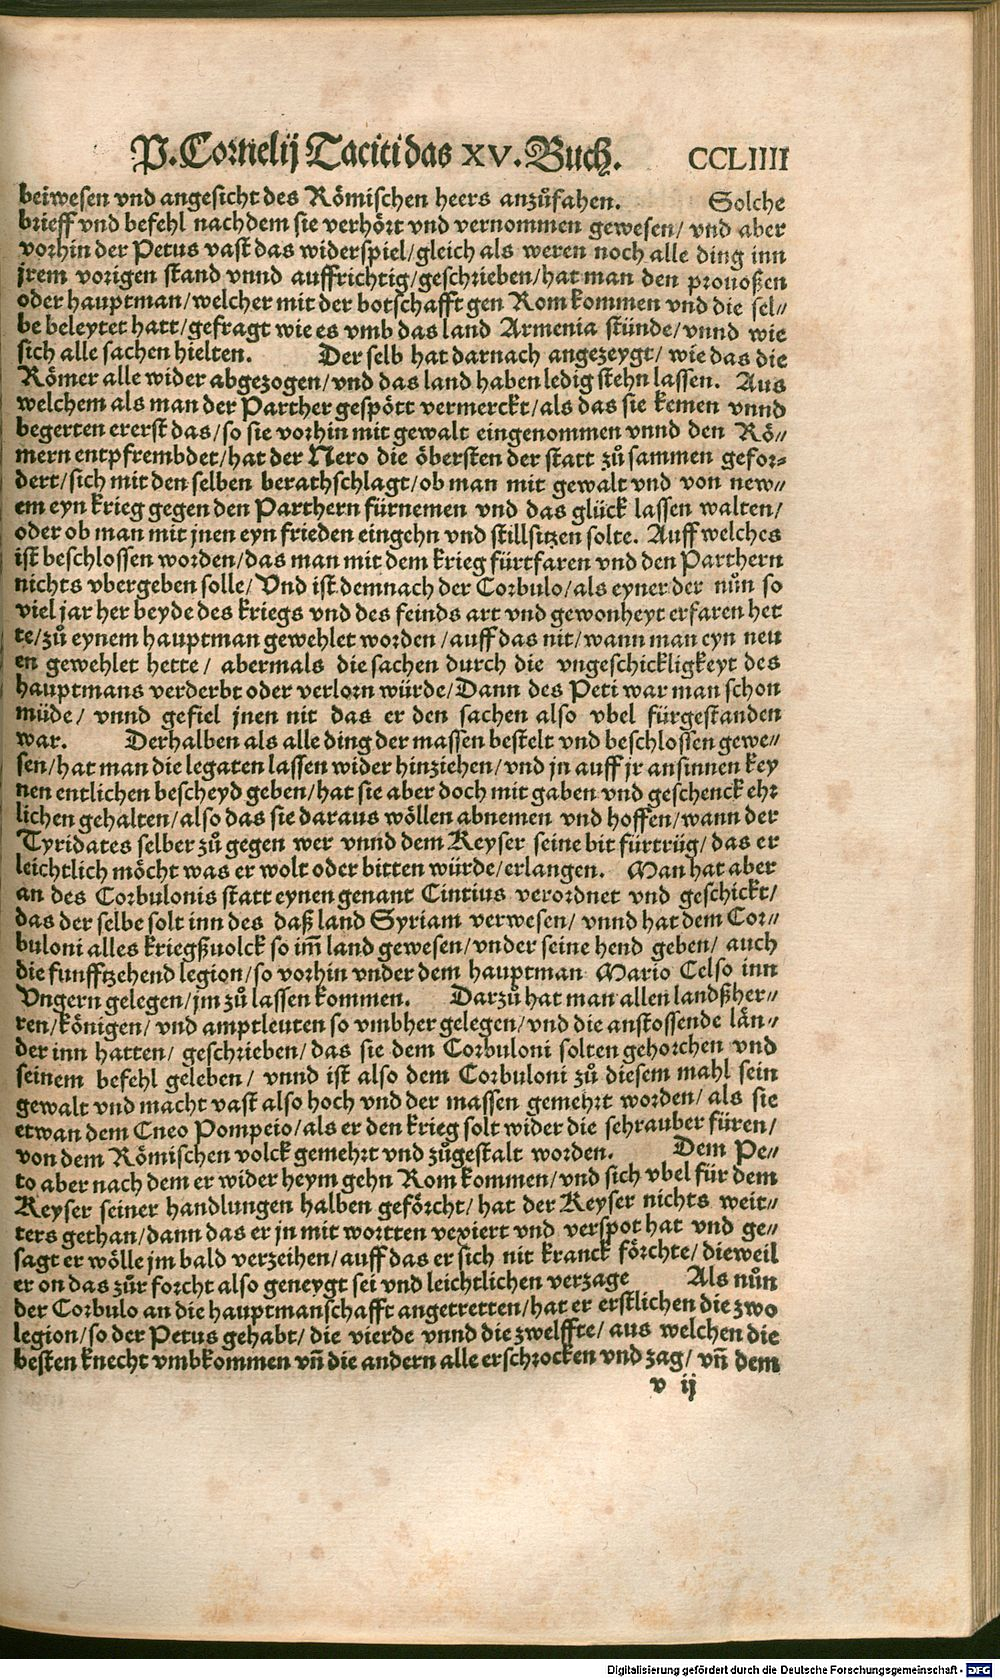 P. Cornelij Taciti das XV. Buch. CCLIIII
beiwesen vnd angesicht des Römischen heers anzůfahen. Solche
brieff vnd befehl nachdem sie verhört vnd vernommen gewesen/ vnd aber
vorhin der Petus vast das widerspiel/gleich als weren noch alle ding inn
jrem vorigen stand vnnd auffrichtig/geschrieben/hat man den prouoßen
oder hauptman/welcher mit der botschafft gen Rom kommen vnd die sel⸗
be beleytet hatt/gefragt wie es vmb das land Armenia stünde/vnnd wie
sich alle sachen hielten. Der selb hat darnach angezeygt/ wie das die
Römer alle wider abgezogen/vnd das land haben ledig stehn lassen. Aus
welchem als man der Parther gespött vermerckt/als das sie kemen vnnd
begerten ererst das/so sie vorhin mit gewalt eingenommen vnnd den Rö⸗
mern entpfrembdet/hat der Nero die öbersten der statt zůsammen gefor⸗
dert/sich mit den selben berathschlagt/ob man mit gewalt vnd von new⸗
em eyn krieg gegen den Parthern fürnemen vnd das glück lassen walten/
oder ob man mit jnen eyn frieden eingehn vnd stillsitzen solte. Auff welches
ist beschlossen worden/das man mit dem krieg fürtfaren vnd den Parthern
nichts vbergeben solle/Vnd ist demnach der Corbulo/als eyner der nůn so
viel jar her beyde des kriegs vnd des feinds art vnd gewonheyt erfaren het
te/zů eynem hauptman gewehlet worden/auff das nit/wann man eyn neu
en gewehlet hette/ abermals die sachen durch die vngeschickligkeyt des
hauptmans verderbt oder verlorn würde/Dann des Peti war man schon
müde/ vnnd gefiel jnen nit das er den sachen also vbel fürgestanden
war. Derhalben als alle ding der massen bestelt vnd beschlossen gewe⸗
sen/hat man die legaten lassen wider hinziehen/vnd jn auff jr ansinnen key
nen entlichen bescheyd geben/hat sie aber doch mit gaben vnd geschenck ehr
lichen gehalten/also das sie daraus wöllen abnemen vnd hoffen/wann der
Tyridates selber zů gegen wer vnnd dem Keyser seine bit fürtrüg/das er
leichtlich möcht was er wolt oder bitten würde/erlangen. Man hat aber
an des Corbulonis statt eynen genant Cintius verordnet vnd geschickt/
das der selbe solt inn des daß land Syriam verwesen/ vnnd hat dem Cor⸗
buloni alles kriegßuolck so im̃ land gewesen/vnder seine hend geben/ auch
die funfftzehend legion/so vorhin vnder dem hauptman Mario Celso inn
Vngern gelegen/jm zů lassen kommen. Darzů hat man allen landßher⸗
ren/königen/ vnd amptleuten so vmbher gelegen/vnd die anstossende län⸗
der inn hatten/ geschrieben/das sie dem Corbuloni solten gehorchen vnd
seinem befehl geleben/ vnnd ist also dem Corbuloni zů diesem mahl sein
gewalt vnd macht vast also hoch vnd der massen gemehrt worden/als sie
etwan dem Cneo Pompeio/als er den krieg solt wider die sehrauber füren/
von dem Römischen volck gemehrt vnd zůgestalt worden. Dem Pe⸗
to aber nach dem er wider heym gehn Rom kommen/vnd sich vbel für dem
Keyser seiner handlungen halben geförcht/ hat der Keyser nichts weit⸗
ters gethan/dann das er jn mit wortten vexiert vnd verspot hat vnd ge⸗
sagt er wölle jm bald verzeihen/auff das er sich nit kranck förchte/dieweil
er on das zůr forcht also geneygt sei vnd leichtlichen verzage Als nůn
der Corbulo an die hauptmanschafft angetretten/hat er erstlichen die zwo
legion/so der Petus gehabt/ die vierde vnnd die zwelffte/aus welchen die
besten knecht vmbkommen vñ die andern alle erschrocken vnd zag/ vñ dem
v ij
Digitalisierung gefördert durch die Deutsche Forschungsgemeinschaft - DFG